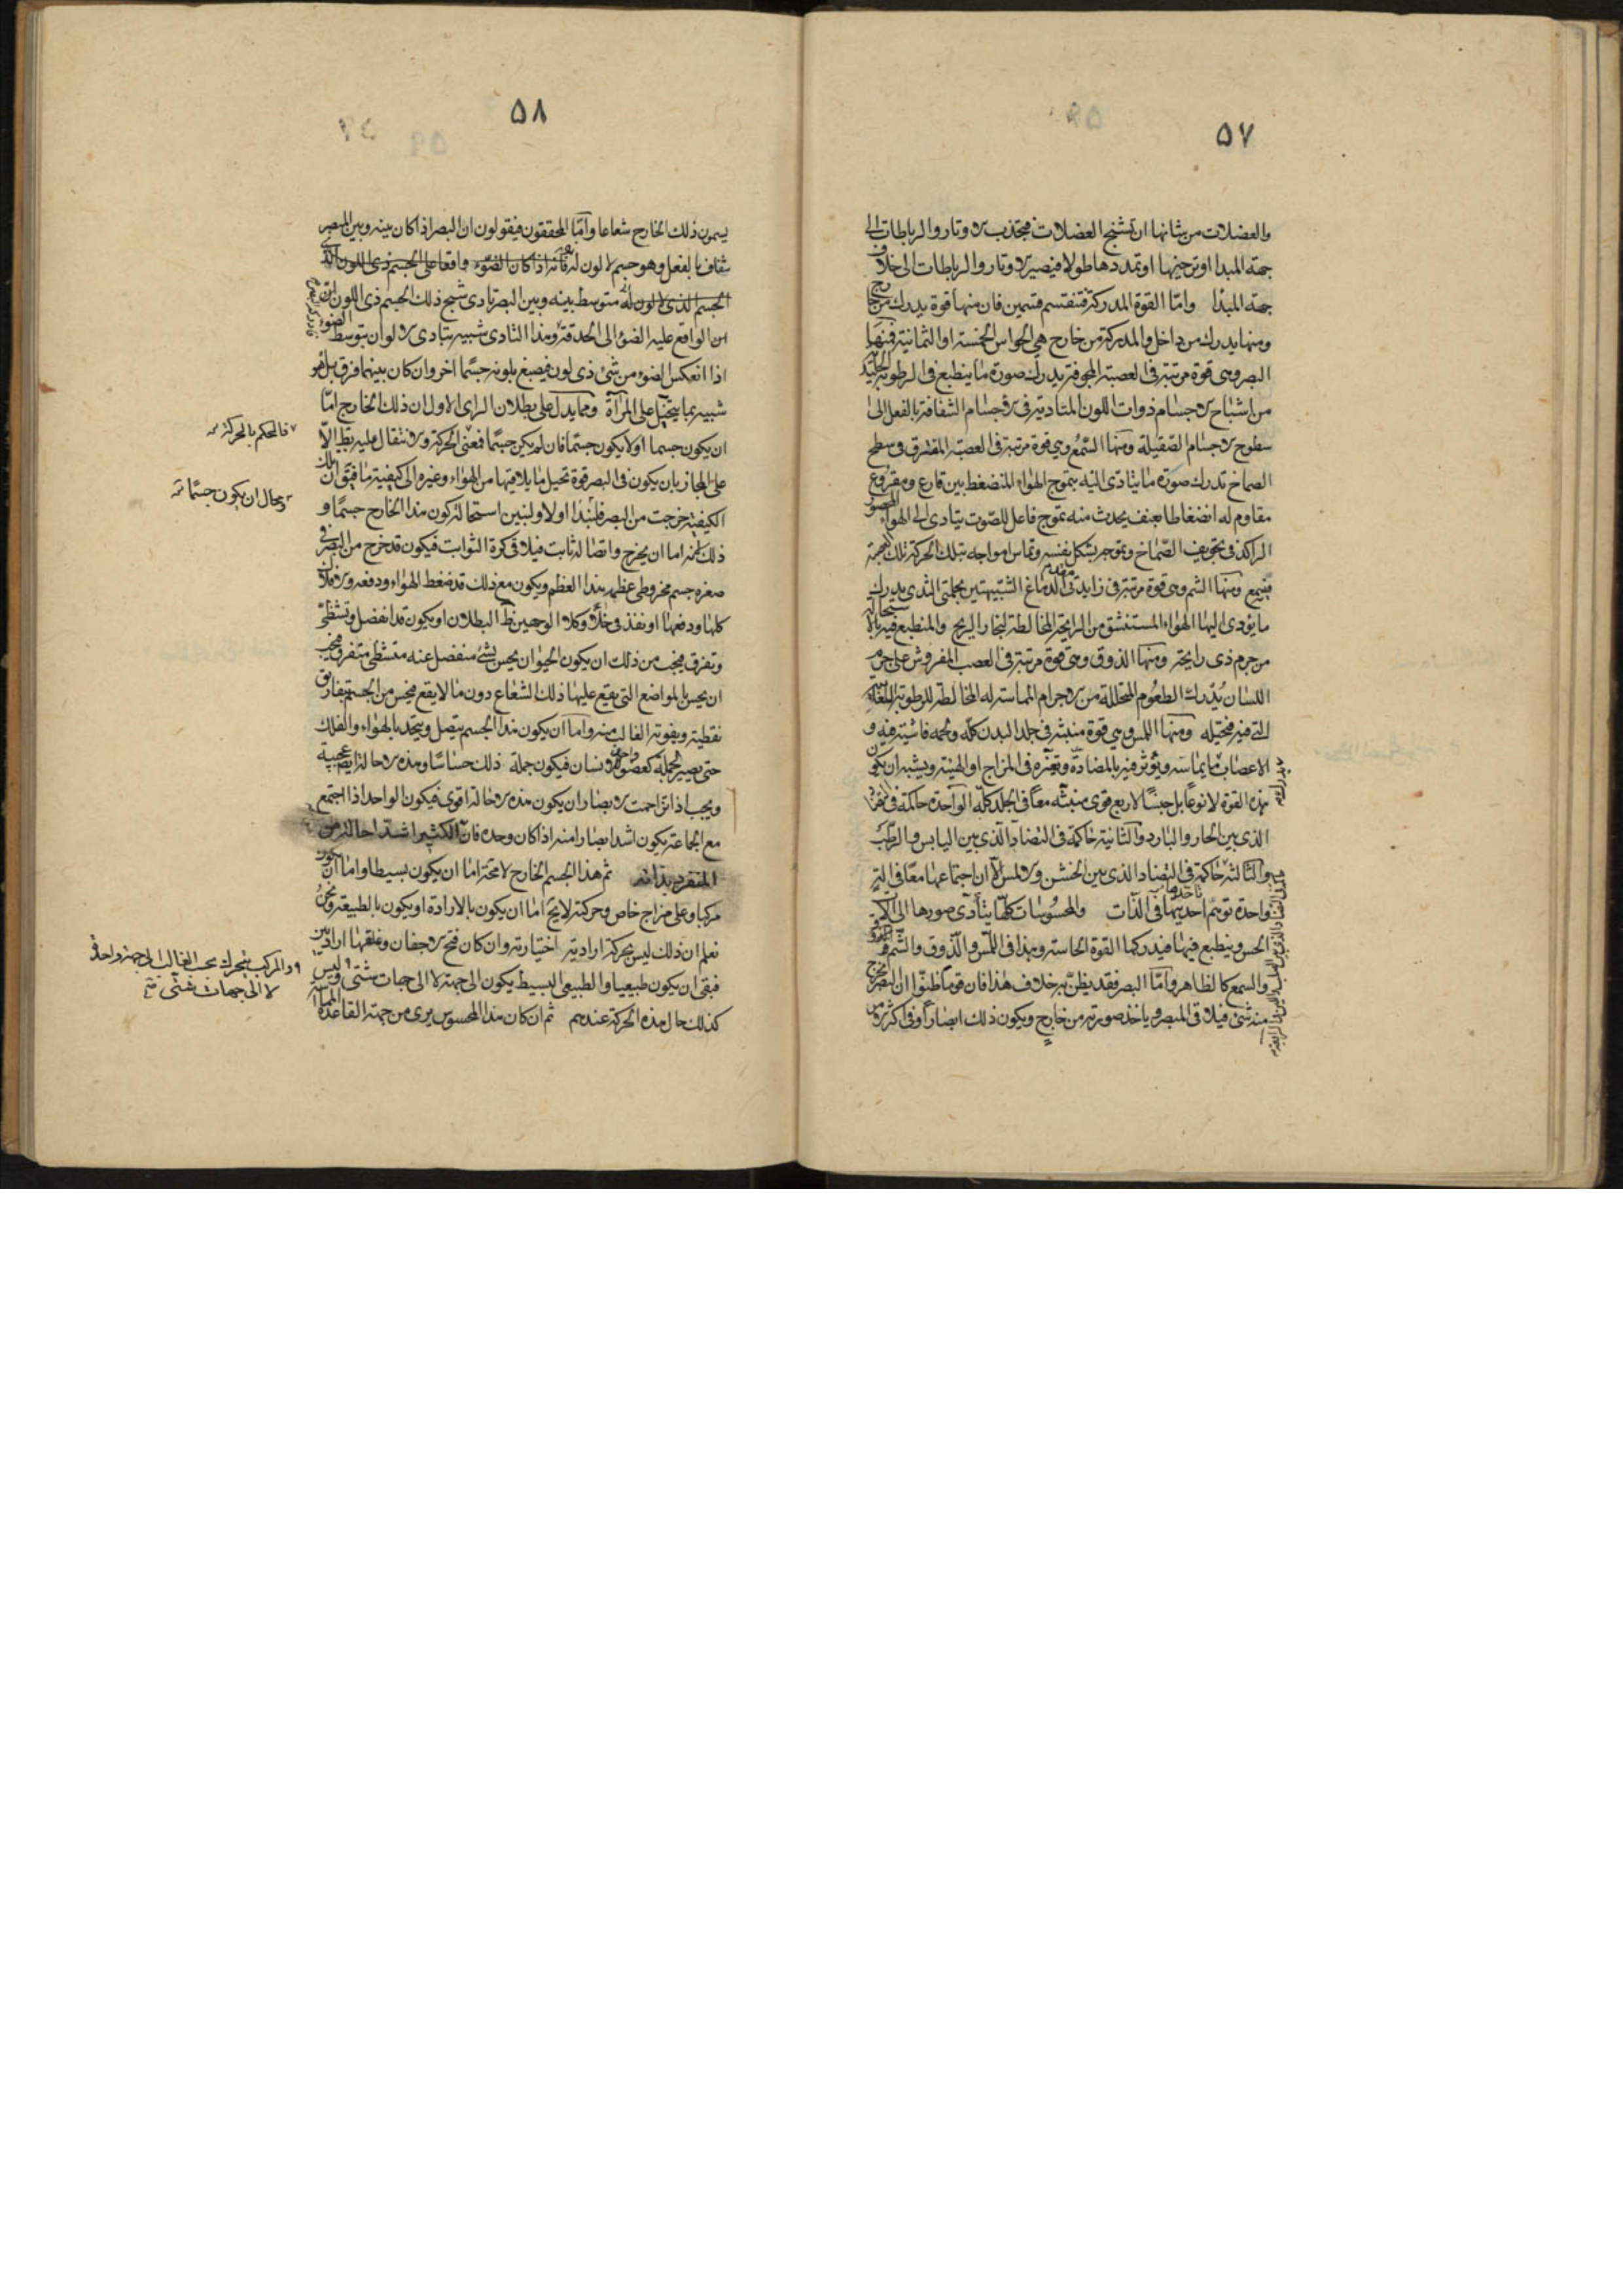 ٥٧
والعضلات من شانها ان تشنج العضلات فتجتذب الاوتار والرباطات الى
جهة المبدا او ترخيها او تمددها طولا فيصير الاوتار والرباطات الى خلاف
جهة المبدا واما القوة المدركة فتنقسم قسمين فان منها قوة يدرك من خارج
ومنها يدرك من داخل والمدركة من خارج هي الحواس الخمسة او الثمانية فمنها
البصر وهي قوة مرتبة في العصبة المجوفة يدرك صورة ما ينطبع في الرطوبة الجليدية
من اشباح الاجسام ذوات اللون المتادية في الاجسام الشفافة بالفعل الى
سطوح الاجسام الصقيلة ومنها السمع وهي قوة مرتبة في العصبة المتفرق في سطح
الصماخ تدرك صورة ما يتادى اليه بتموج الهواء المنضغط بين قارع ومقروع
مقاوم له انضغاطا بعنف يحدث منه تموج فاعل للصوت يتادى الى الهواء المحصور
الراكد في تجويف الصماخ ويموجه بشكل نفسه وتماس امواجه بتلك الحركة تلك العصبة
فيسمع ومنها الشم وهي قوة مرتبة في زايدتي مقدم الدماغ الشبيهتين بحلمتي الثدي يدرك
ما يؤدى اليها الهواء المستنشق من الرايحة المخالطة لبخار الريح والمنطبع فيه بالاستحالة
من جرم ذي رايحة ومنها الذوق وهي قوة مرتبة في العصب المفروش على جرم
اللسان يدرك الطعوم المتحللة من الاجرام المماسة له المخالطة للرطوبة اللعابية
التي فيه فتحيله ومنها اللمس وهي قوة منبثة في جلد البدن كله ولحمه فاشية فيه و
الاعصاب يدرك ما يماسه ويؤثر فيه بالمضادة وتغيره في المزاج او الهيئة ويشبه ان يكون
هذه القوة لا نوعا بل جنسا لاربع قوى منبثة معا في الجلد كله الواحدة حاكمة في التضاد
الذي بين الحار والبارد والثانية حاكمة في التضاد الذي بين اليابس والرطب
والثالثة حاكمة في التضاد الذي بين الخشن والاملس الا ان اجتماعها معا في آلة
واحدة توهم تاحدها في الذات والمحسوسات كلها يتأدى صورها الى آلات
الحس وينطبع فيها فيدركها القوة الحاسة وهذا في اللمس والذوق والشم
والسمع كالظاهر واما البصر فقد يظن به خلاف هذا فان قوما ظنوا ان البصر يخرج
منه شيء فيلاقي المبصر وياخذ صورته من خارج ويكون ذلك ابصارا وفي اكثر
٥٨
يسمون ذلك الخارج شعاعا واما المحققون فيقولون ان البصر اذا كان بينه وبين المبصر
شفاف بالفعل وهو جسم لا لون له فانه اذا كان الضوء واقعا على الجسم ذي اللون الذي
الجسم الذي لا لون له متوسط بينه وبين البصر تادى شبح ذلك الجسم ذي اللون
الواقع عليه الضوء الى الحدقة وهذا التادى شبيه بتادى الالوان بتوسط الضوء
اذا انعكس الضوء من شيء ذي لون فيصبغ بلونه جسما اخر وان كان بينهما فرق بل هو
شبيه بما يتخيل على المرآة ومما يدل على بطلان الراى الاول ان ذلك الخارج اما
ان يكون جسما او لا يكون جسما فان لم يكن جسما فمعنى الحركة والانتقال عليه بط الا
فالحكم بالحركة
على المجاز بان يكون في البصر قوة تحيل ما يلاقيها من الهواء وغيره الى كيفية ما فيق ان تلك
الكيفية خرجت من البصر فلنبدا اولا ولنبين استحالة كون هذا الخارج جسما و
ومحال ان يكون جسما
ذلك لانه اما ان يخرج واتصاله ثابت فيلاقي كرة الثوابت فيكون قد خرج من البصر في
صغره جسم مخروطي عظيم بهذا العظم ويكون مع ذلك قد ضغط الهواء ودفعه والافلاك
كلها ودفعها او نفذ في خلأ وكلا الوجهين ظ البطلان او يكون قد انفصل وتشظى
وتفرق فيجب من ذلك ان يكون الحيوان يحس بشيء منفصل عنه متشظى متفرق فيجب
ان يحس بالمواضع التي يقع عليها ذلك الشعاع دون ما لا يقع فيحس من الجسم بتفاريق
نقطية ويفوته الغالب منه واما ان يكون هذا الجسم يتصل ويتحد بالهواء والفلك
حتى يصير الجملة كعضو واحد للانسان فيكون جملة ذلك حساسا وهذه الاحالة ايض عجيبة
ويجب اذا تزاحمت الابصار ان يكون هذه الاحالة اقوى فيكون الواحد اذا اجتمع
مع الجماعة يكون اشد ابصارا منه اذا كان وحده فان الكثير اشد احالة من
المنفرد بذاته ثم هذا الجسم الخارج لا محة اما ان يكون بسيطا واما ان يكون
مركبا وعلى مزاج خاص وحركته لا يخ اما ان يكون بالارادة او يكون بالطبيعة ونحن
نعلم ان ذلك ليس بحركة ارادية اختيارية وان كان فتح الاجفان وغلقها اراديين
فبقى ان يكون طبيعيا والطبيعي البسيط يكون الى جهة لا الى جهات شتى وليس
والمركب يتحرك بحسب الغالب الى جهة واحدة
لا الى جهات شتى
كذلك حال هذه الحركة عندهم ثم ان كان هذا المحسوس يرى من جهة القاعدة المماسة